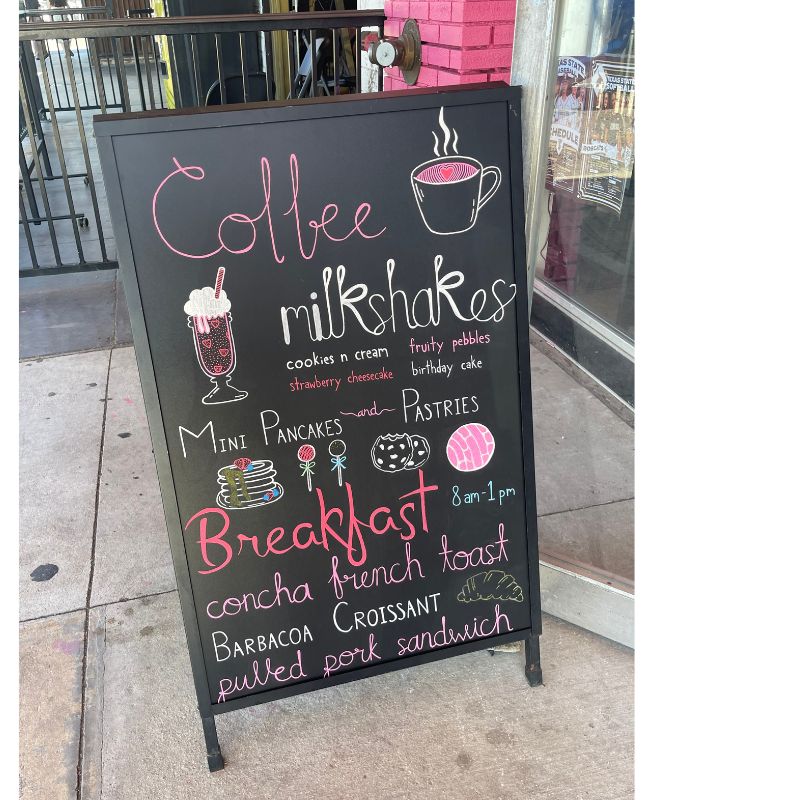 Coffee
milkshakes
cookies n cream fruity pebbles
strawberry cheesecake birthday cake
MINI PANCAKES and PASTRIES
Breakfast 8am-1pm
concha french toast
BARBACOA CROISSANT
pulled pork sandwich
TEXAS STATE
SOFTBALL
BOBCATS